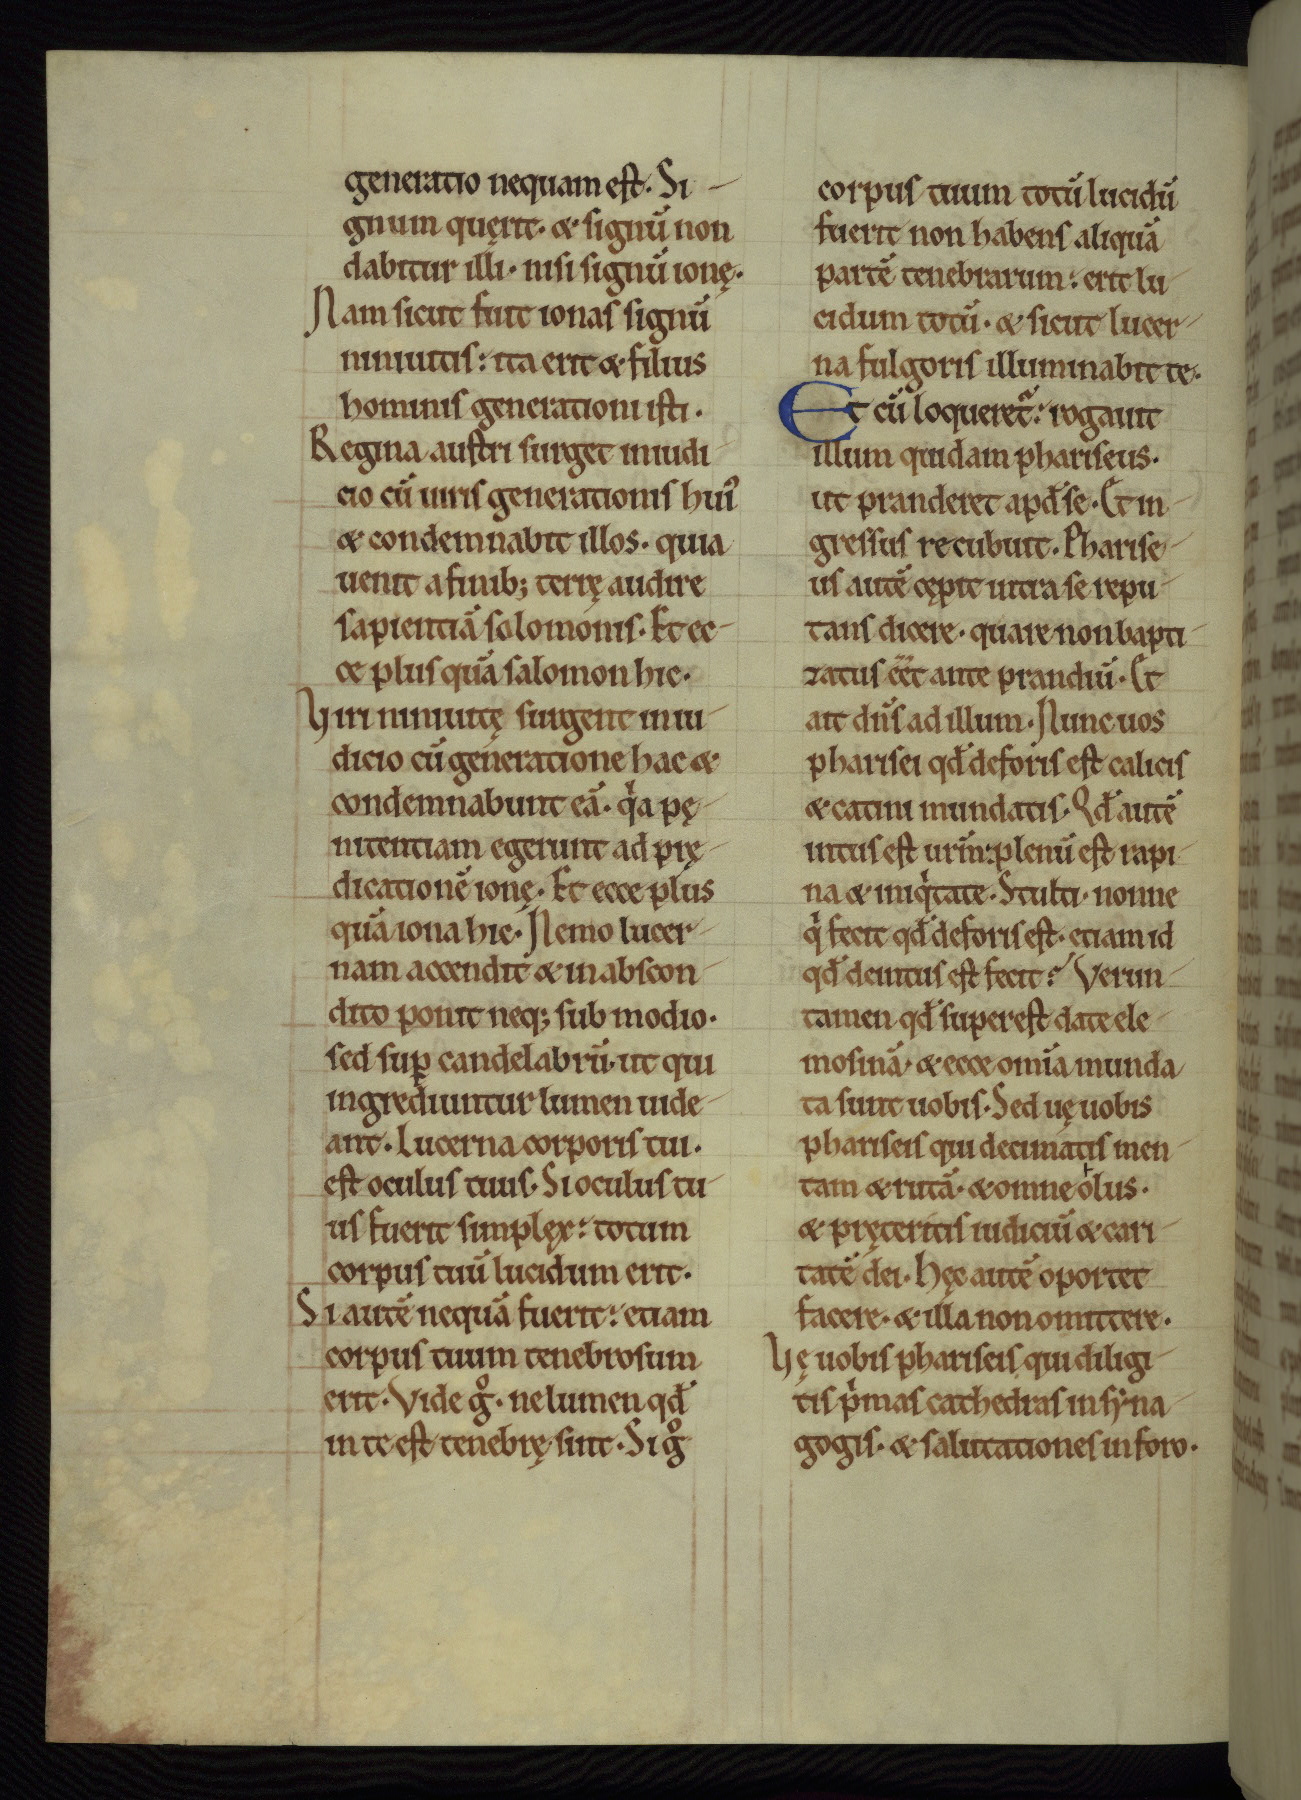 generatio nequam est. Si
gnum quęrit. & signū non
dabitur illi. nisi signū ionę.
Nam sicut fuit ionas signū
niniuitis: ita erit & filius
hominis generationi isti.
Regina austri surget in iudi
cio cū uiris generationis huiꝰ
& condemnabit illos. quia
uenit a finib; terrę audire
sapientiā solomonis. Et ec
ce plus quā salomon hic.
Viri niniuitę surgent in iu
dicio cū generatione hac &
condemnabunt eā. qͥa pę
nitentiam egerunt ad prę
dicationē ionę. Et ecce plus
quā iona hic. Nemo lucer
nam accendit & in abscon
dito ponit neq; sub modio.
sed suꝑ candelabrū. ut qui
ingrediuntur lumen uide
ant. Lucerna corporis tui.
est oculus tuus. Si oculus tu
us fuerit simplex: totum
corpus tuū lucidum erit.
Si autē nequā fuerit: etiam
corpus tuum tenebrosum
erit. Vide gͦ. ne lumen qđ
in te est tenebrę sint. Si gͦ
corpus tuum totū lucidū
fuerit non habens aliquā
partē tenebrarum: erit lu
cidum totū. & sicut lucer
na fulgoris illuminabit te.
Et cū loqueret᷑: rogauit
illum quidam phariseus.
ut pranderet apđ se. Et in
gressus recubuit. Pharise
us autē cępit intra se repu
tans dicere. quare non bapti
zatus eēt ante prandiū. Et
ait dn̄s ad illum. Nunc uos
pharisei qđ deforis est calicis
& catini mundatis. Qđ autē
intus est urm̄: plenū est rapi
na & iniqͥtate. Stulti. nonne
qͥ fecit qđ deforis est. etiam id
qđ deintus est fecit? Verun
tamen qđ superest date ele
mosinā. & ecce omīa munda
ta sunt uobis. Sed uę uobis
phariseis qui decimatis men
tam & rutā. & omne olus.
& pręteritis iudiciū & cari
tatē dei. Hęc autē oportet
facere. & illa non omittere.
Vę uobis phariseis qui diligi
tis pͥmas cathedras in sẏna
gogis. & salutationes in foro.